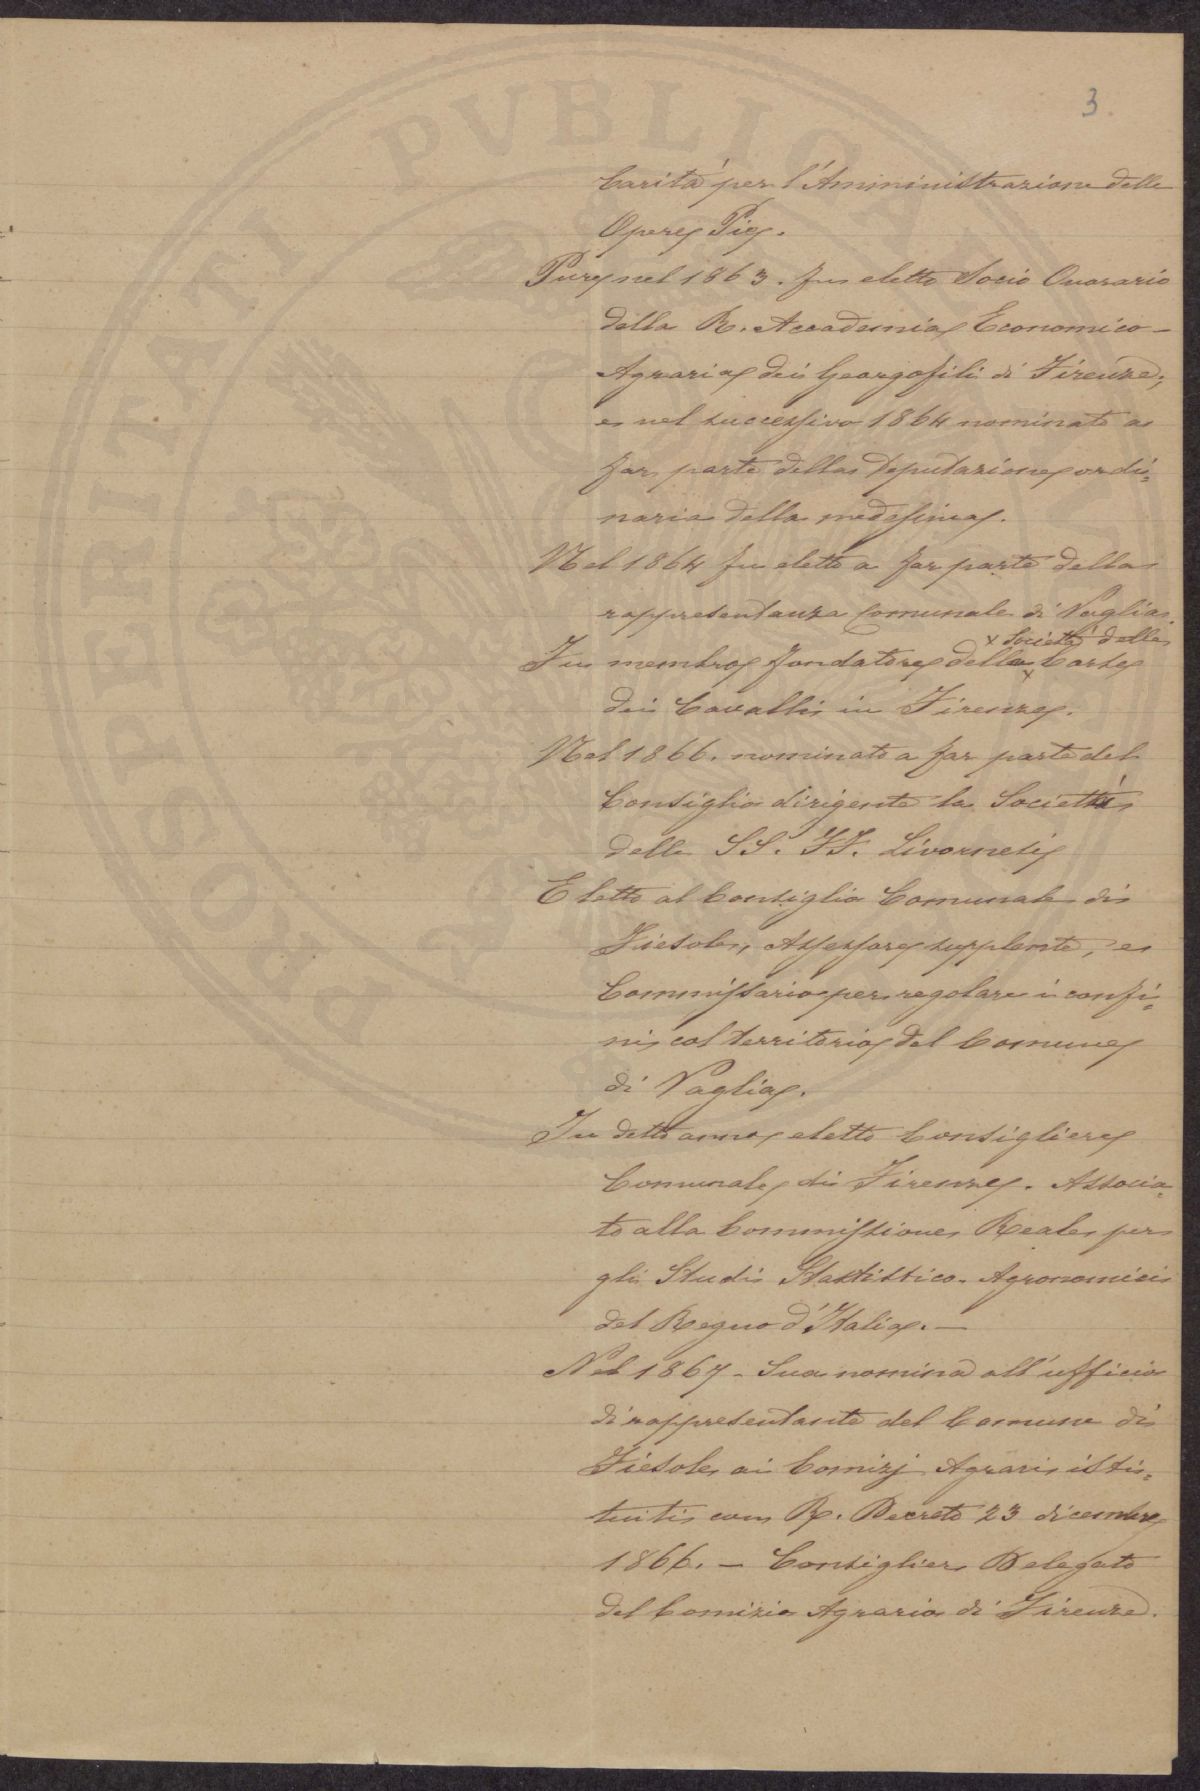 3
Carità per l'Amministrazione delle
Opere Pie.
Pure nel 1863. fu eletto Socio Onorario
della R. Accademia Economico-
Agraria dei Georgofili di Firenze;
e nel successivo 1864 nominato a
far parte della Deputazione ordi=
naria della medesima.
Nel 1864 fu eletto a far parte della
rappresentanza Comunale di Vaglia.
x Società delle
Fu membro fondatore della x Corse
dei Cavalli in Firenze.
Nel 1866. nominato a far parte del
Consiglio dirigente la Società
delle SS. FF. Livornesi
Eletto al Consiglio Comunale di
Fiesole, Assessore supplente, e
Commissario per regolare i confi=
ni col territorio del Comune
di Vaglia.
In detto anno eletto Consigliere
Comunale di Firenze. Associa=
to alla Commissione Reale per
gli Studi Stastistico-Agronomici
del Regno d'Italia. —
Nel 1867 - Sua nomina all'ufficio
di rappresentante del Comune di
Fiesole ai Comizj Agrari isti=
tuiti con R. Decreto 23 dicembre
1866. — Consigliere Delegato
del Comizio Agrario di Firenze.
PROSPERITATI PVBLICA